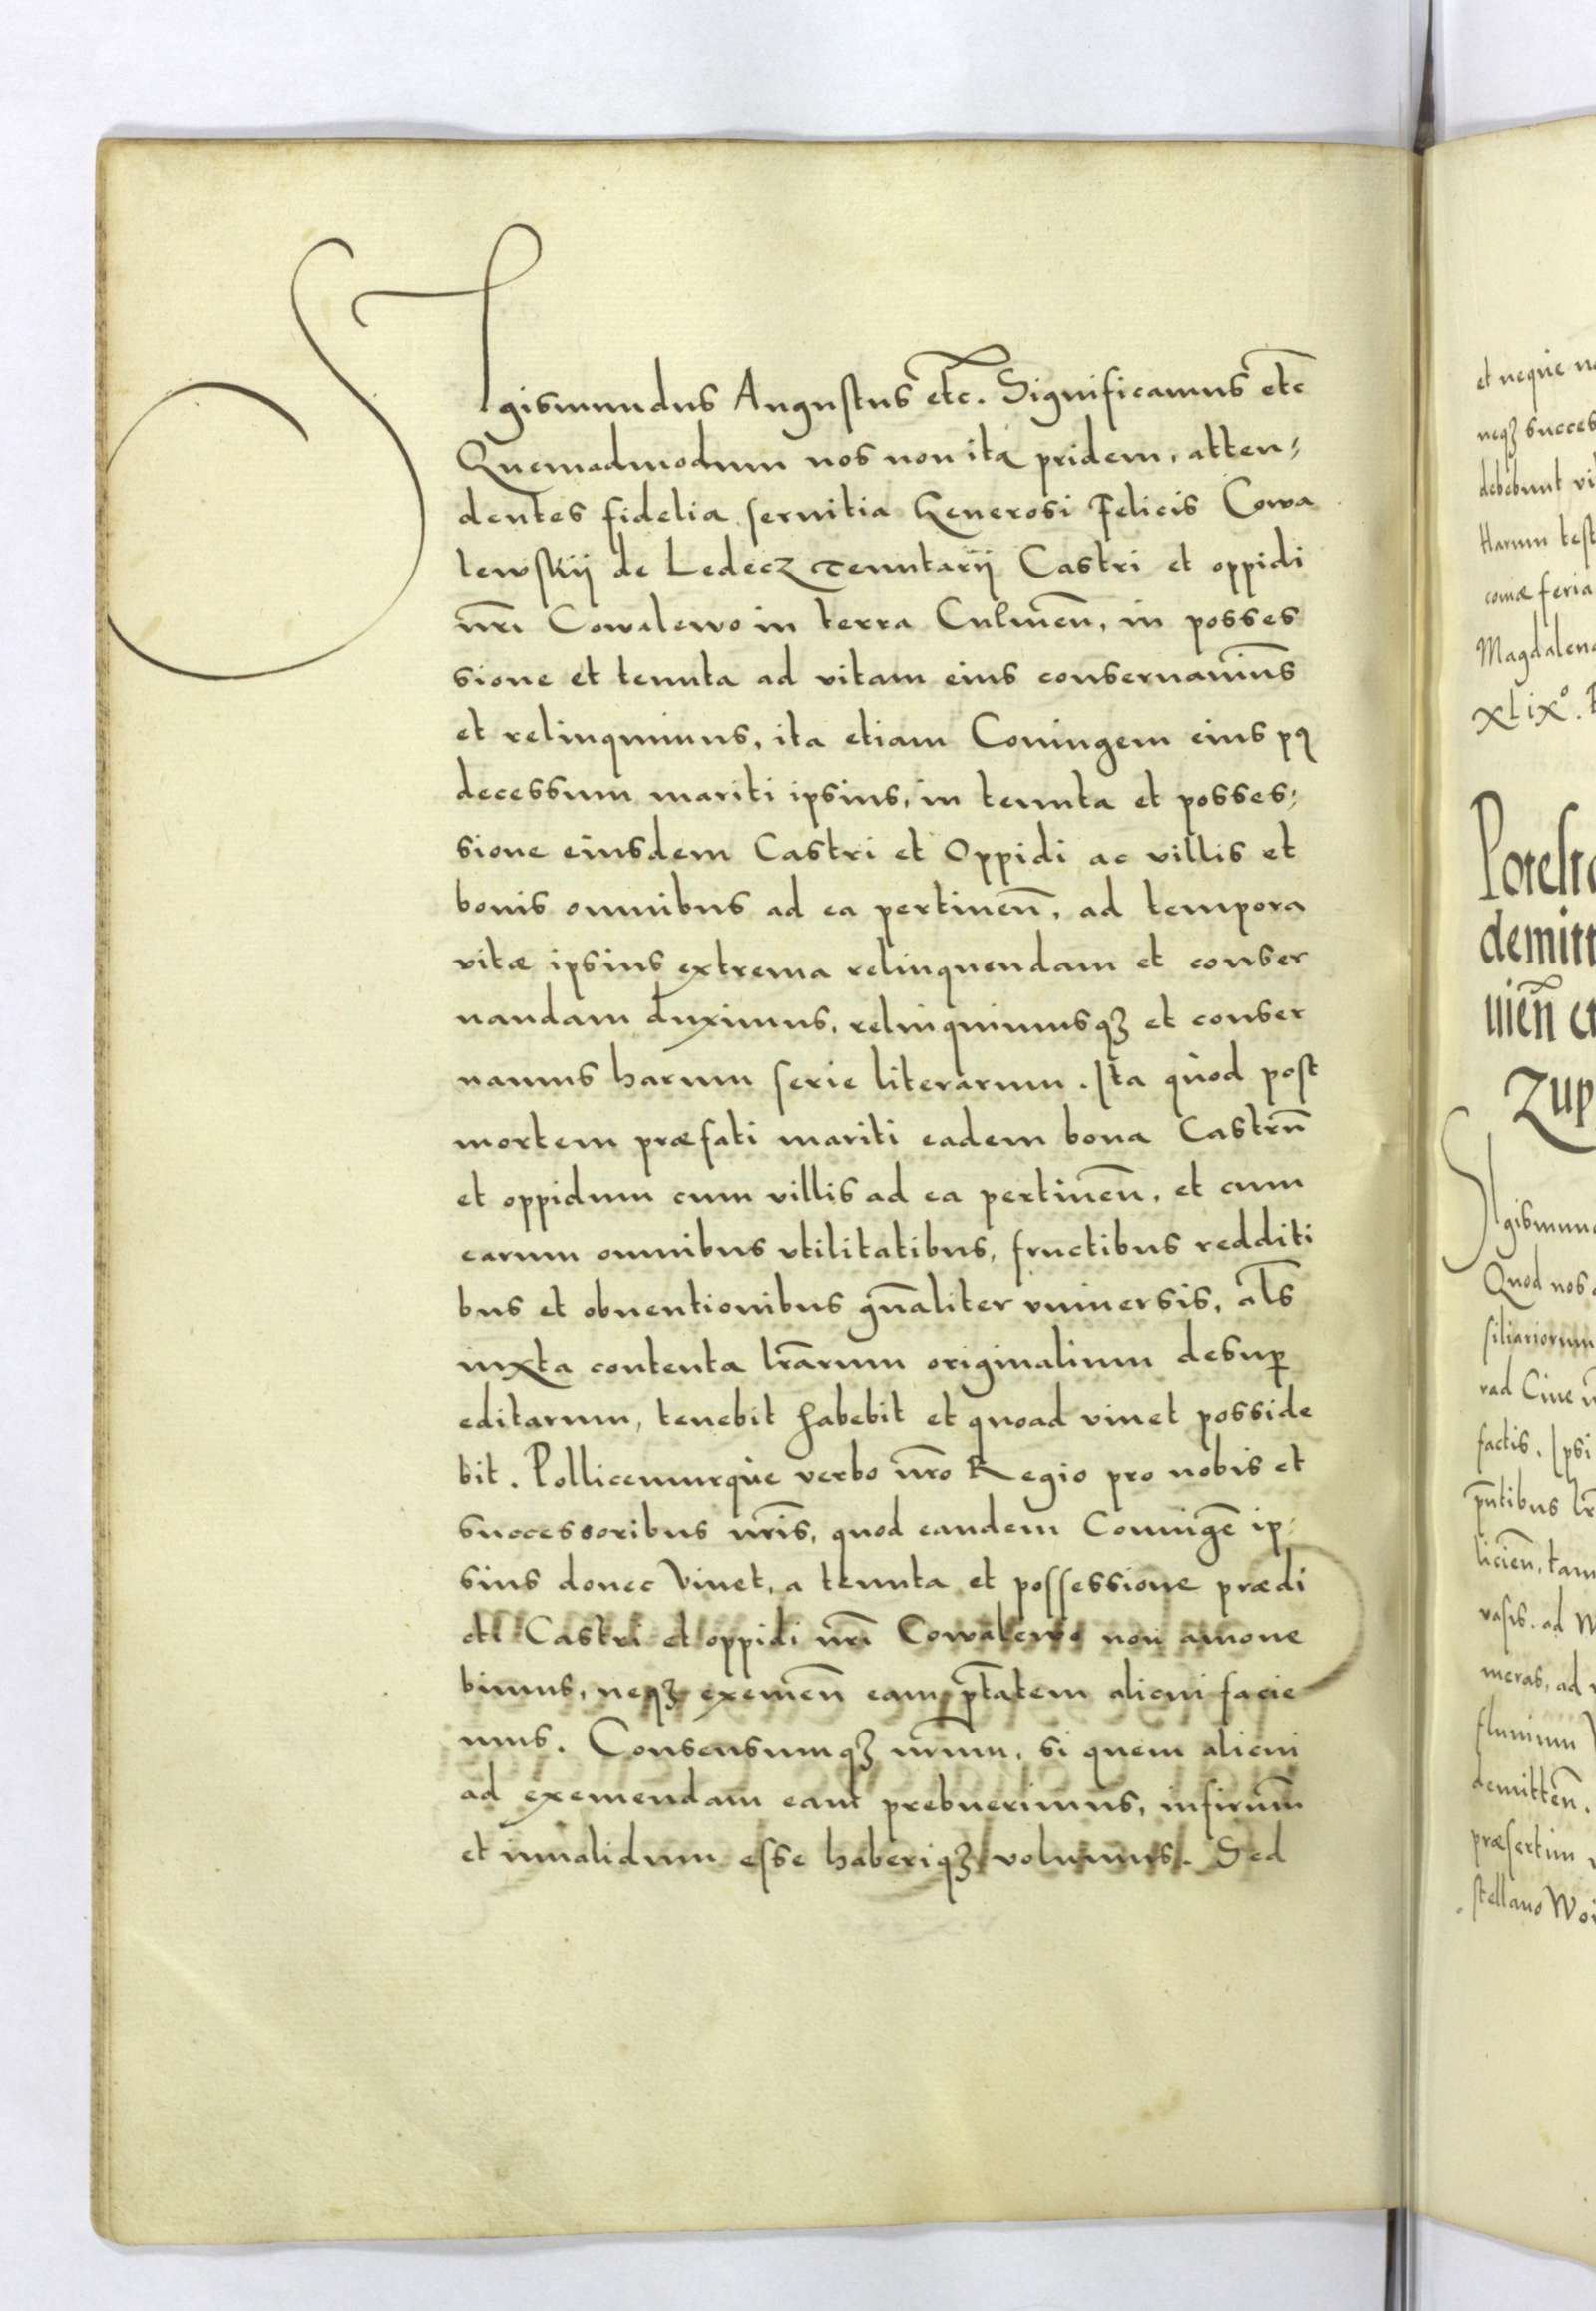 Sigismundus Augustus etc. Significamus etc
Quemadmodum nos non ita pridem, atten⸗
dentes fidelia seruitia Generosi Felicis Cowa
lewskij de Ledecz Tenutarij Castri et oppidi
nrī Cowalewo in terra Culmeñ, in posses
sione et tenuta ad vitam eius conseruauim̄s
et relinquimus, ita etiam Coniugem eius pꝰ
decessum mariti ipsius, in tenuta et posses;
sione eiusdem Castri et Oppidi ac villis et
bonis omnibus ad ea pertineñ, ad tempora
vitæ ipsius extrema relinquendam et conser
uandam duximus, relinquimusqꝫ et conser
uamus harum serie literarum. Ita quòd post
mortem præfati mariti eadem bona Castrū
et oppidum cum villis ad ea pertineñ, et cum
earum omnibus vtilitatibus, fructibus redditi
bus et obuentionibus gñaliter vniuersis, al̄s
iuxta contenta lrārum originalium desuꝑ
editarum, tenebit habebit et quoad viuet posside
bit. Pollicemurque verbo nrō Regio pro nobis et
successoribus nrīs, quod eandem Coniugē ip⸗
sius donec viuet, a tenuta et possessione prædi
cti Castri et oppidi nrī Cowalewo non amoue
bimus, neqꝫ eximeñ eam ptātem alicui facie
mus. Consensumqꝫ nrūm, si quem alicui
ad exemendam eam prebuerimus, infirmū
et inualidum esse haberiqꝫ volumus. Sed
et neque
neqꝫ succes
debebunt
Harum test
coniæ feria
Magdalena
xlixº.
Potesta
demitt
uieñ
Zup
Sigismun
Quod nos
siliariorum
rad Ciue
factis. Ipsi
pñtibus lr̄
licieñ, tam
vasis. ad
meras, ad
fluuium
demitteñ.
præsertim
stellano Woi